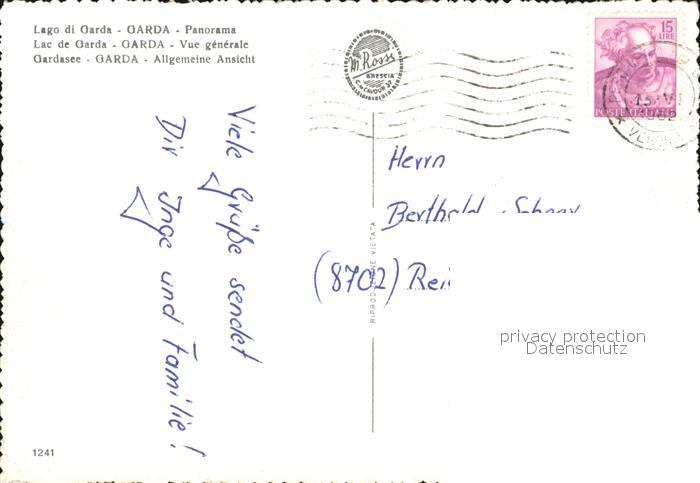 Lago di Garda - GARDA - Panorama
Lac de Garda - GARDA - Vue générale
Gardasee - GARDA - Allgemeine Ansicht
M. Rossi
BRESCIA
C. CAVOUR 37
15 LIRE
POSTE ITALIANE
VERONA
Herrn
Berthold
(8702)
RIPRODUZIONE VIETATA
Viele Grüße sendet
Dir Inge und Familie!
privacy protection
Datenschutz
1241